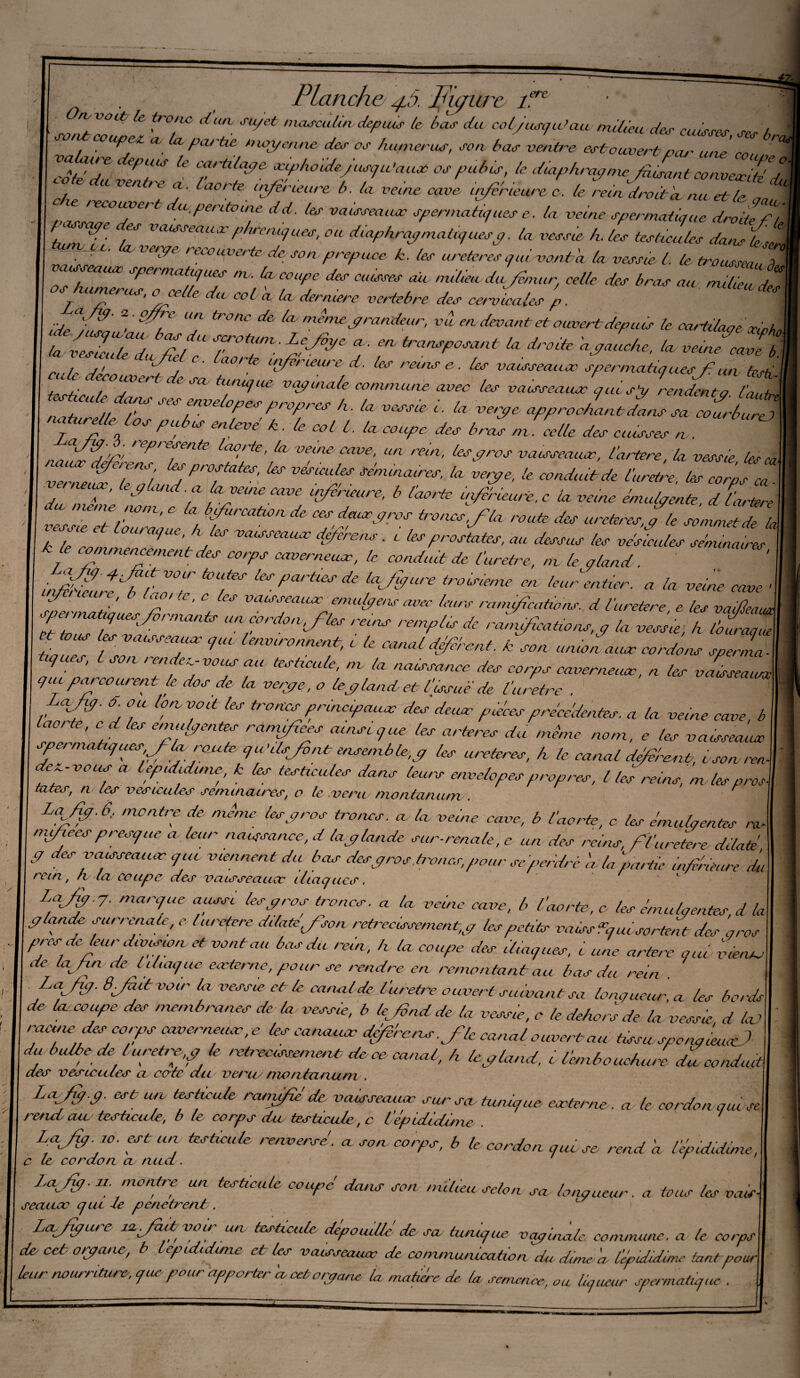 47.
Planche 45. Figure 1.ere
On voit le tronc d'un sujet masculin depuis le bas du col jusqu'au milieu des cuisses, ses bras
sont coupez a la partie moyenne des os humerus, son bas ventre est ouvert par une coupe o-
valaire depuis le cartilage xiphoide jusqu'aux os pubis, le diaphragme faisant convexité du
côté du ventre a. l'aorte inférieure b. la veine cave inférieure c. le rein droit à nu et le gau-
che recouvert du peritoine d d. les vaisseaux spermatiques e. la veine spermatique droite f le
passage des vaisseaux phreniques, ou diaphragmatiques g. la vessie h. les testicules dans le scro
tum i i. la verge recouverte de son prepuce k. les ureteres qui vont à la vessie l. le trousseau des
vaisseaux spermatiques m. la coupe des cuisses au milieu du fémur, celle des bras au milieu des
os humerus, o celle du col à la derniere vertebre des cervicales p.
La fig. 2. offre un tronc de la même grandeur, vû en devant et ouvert depuis le cartilage xipho
ide jusqu'au bas du scrotum. Le foye a. en transposant la droite a gauche, la veine cave b.
la vesicule du fiel c. l'aorte inférieure d. les reins e. les vaisseaux spermatiques f. un testi-
cule découvert de sa tunique vaginale commune avec les vaisseaux qui s'y rendent g. l'autre
testicule dans ses envelopes propres h. la vessie i. la verge approchant dans sa courbure
naturelle l'os pubis enlevé k. le col l. la coupe des bras m. celle des cuisses n.
La fig. 3. represente l'aorte, la veine cave, un rein, les gros vaisseaux, l'artere, la vessie, les ca
naux déférens, les prostates, les vésicules séminaires, la verge, le conduit de l'uretre, les corps ca-
verneux, le gland. a la veine cave inférieure, b l'aorte inférieure, c la veine émulgente, d l'artere
du même nom, e la bifurcation de ces deux gros troncs, f la route des ureteres, g le sommet de la
vessie et l'ouraque, h les vaisseaux déférens. i les prostates, au dessus les vésicules séminaires,
k le commencement des corps caverneux, le conduit de l'uretre, m le gland.
La fig. 4. fait voir toutes les parties de la figure troisieme en leur entier. a la veine cave
inférieure, b l'aorte, c les vaisseaux emulgens avec leurs ramifications. d l'uretere, e les vaisseaux
spermatiques formants un cordon, f les reins remplis de ramifications, g la vessie, h l'ouraque
et tous les vaisseaux qui l'environnent, i le canal déférent. k son union aux cordons sperma-
tiques, l son rendez-vous au testicule, m la naissance des corps caverneux, n les vaisseaux
qui parcourent le dos de la verge, o le gland et l'issuë de l'uretre.
La fig. 5. ou l'on voit les troncs principaux des deux piéces precédentes. a la veine cave, b
l'aorte, c d les emulgentes ramifiées ainsi que les arteres du même nom, e les vaisseaux
spermatiques, f la route qu'ils font ensemble, g les ureteres, h le canal déférent, i son ren-
dez-vous a l'épididime, k les testicules dans leurs envelopes propres, l les reins, m les pros-
tates, n les vésicules séminaires, o le veru montanum.
La fig. 6. montre de même les gros troncs. a la veine cave, b l'aorte, c les émulgentes ra-
mifiées presque a leur naissance, d la glande sur-renale, e un des reins, f l'uretere dilaté,
g des vaisseaux qui viennent du bas des gros troncs, pour se perdre à la partie inférieure du
rein, h la coupe des vaisseaux iliaques.
La fig. 7. marque aussi les gros troncs. a la veine cave, b l'aorte, c les émulgentes, d la
glande surrenale, e l'uretere dilaté, f son retrecissement, g les petits vaiss.x qui sortent des gros
près de leur division et vont au bas du rein, h la coupe des iliaques, i une artere qui vient
de la fin de l'iliaque externe, pour se rendre en remontant au bas du rein.
La fig. 8. fait voir la vessie et le canal de l'uretre ouvert suivant sa longueur, a les bords
de la coupe des membranes de la vessie, b le fond de la vessie, c le dehors de la vessie, d la
racine des corps caverneux, e les canaux déférens. f le canal ouvert au tissu spongieux
du bulbe de l'uretre, g le retrecissement de ce canal, h le gland, i l'embouchure du conduit
des vésicules à côté du veru montanum.
La fig. 9. est un testicule ramifié de vaisseaux sur sa tunique externe. a le cordon qui se
rend au testicule, b le corps du testicule, c l'épididime.
La fig. 10. est un testicule renversé. a son corps, b le cordon qui se rend à l'épididime,
c le cordon a nud.
La fig. 11. montre un testicule coupé dans son milieu selon sa longueur. a tous les vais-
seaux qui le pénétrent.
La figure 12. fait voir un testicule dépouillé de sa tunique vaginale commune. a le corps
de cet organe, b l'épididime et les vaisseaux de communication du dime à l'épididime tant pour
leur nourriture, que pour apporter a cet organe la matiére de la semence, ou liqueur spermatique.